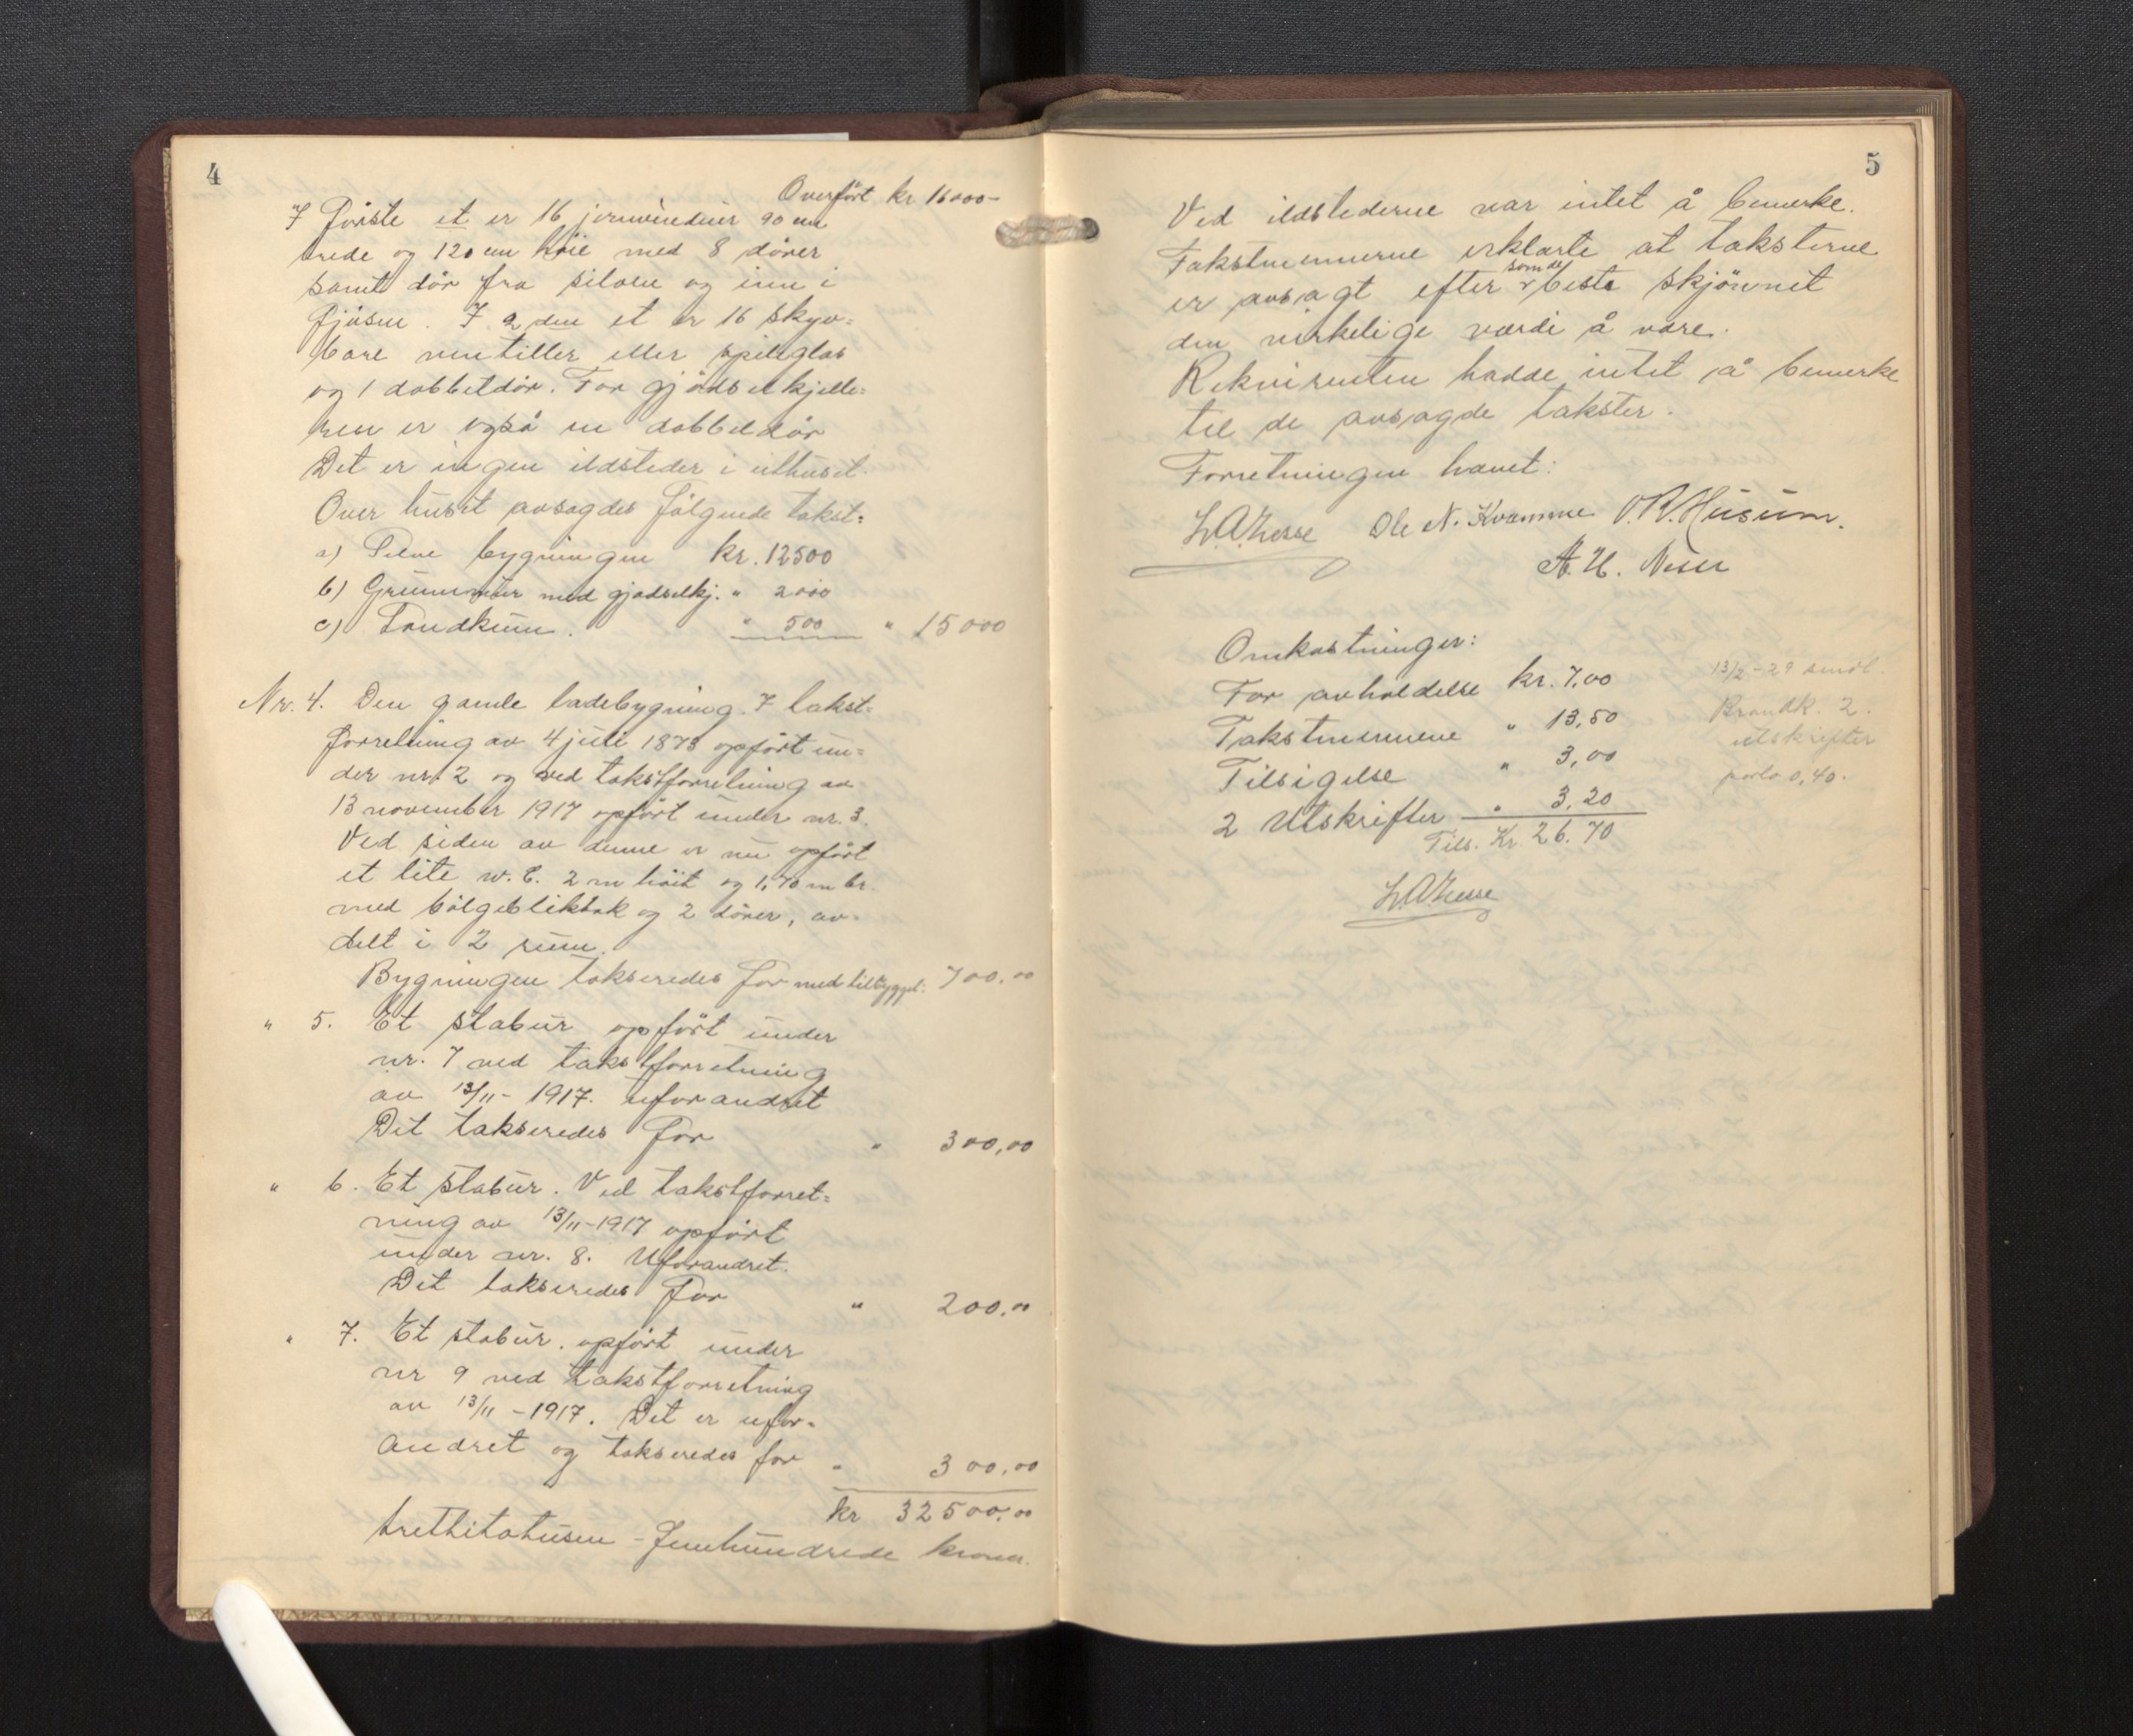 4
Overført kr 16000-
I første et. er 16 jernvinduer 90 cm
brede og 120 cm höie med 8 dörer
samt dör fra siloen og inn i
fjösen. I 2 den et. er 16 skyv=
bare ventiller eller speilglas
og 1 dobbeldör. For gjödselkjelle=
ren er også en dobbeldör
Det er ingen ildsteder i uthuset.
Over huset avsagdes fölgende takst:
a) Selve bygningen kr. 12500
b) Grunnmur med gjødselkj. " 2000
c) Landkum. " 500 " 15000
Nr. 4. Den gamle ladebygning. I takst=
forretning av 4 juli 1873 opfört un=
der nr. 2 og ved takstforretning av
13 november 1917 opfört under nr. 3.
Ved siden av denne er nu opfört
et lite w.C. 2 m höit og 1,70 m br.
med bölgebliktak og 2 dörer, av=
delt i 2 rum.
Bygningen takseredes for med tilbygget: 700,00
" 5. Et stabur opfört under
nr. 7 ved takstforretning
av 13/11- 1917. Uforandret
Det takseredes for " 300,00
" 6. Et stabur. Ved takstforret=
ning av 13/11-1917 opfört
under nr. 8. Uforandret.
Det takseredes for " 200,00
" 7. Et stabur. opfört under
nr 9 ved takstforretning
av 13/11-1917. Det er ufor=
andret og takseredes for " 300,00
kr 32500,00
trettitotusen - femhundrede kroner.
5
Ved ildstederne var intet å bemerke.
Takstmennerne erklærte at taksterne
er avsagt efter som de beste skjönnet
den virkelige værdi å være.
Rekvirenten hadde intet å bemerke
til de avsagde takster.
Forretningen hævet:
Ole N. Kvamme V. R. Husum.
A. H. Nesse
Omkostninger:
For avholdelse kr. 7,00
Takstmennene " 13,50
Tilsigelse " 3,00
2 Utskrifter " 3,20
Tils. Kr. 26.70
13/2-29 sendt
Brandk. 2
utskrifter
porto 0,40.